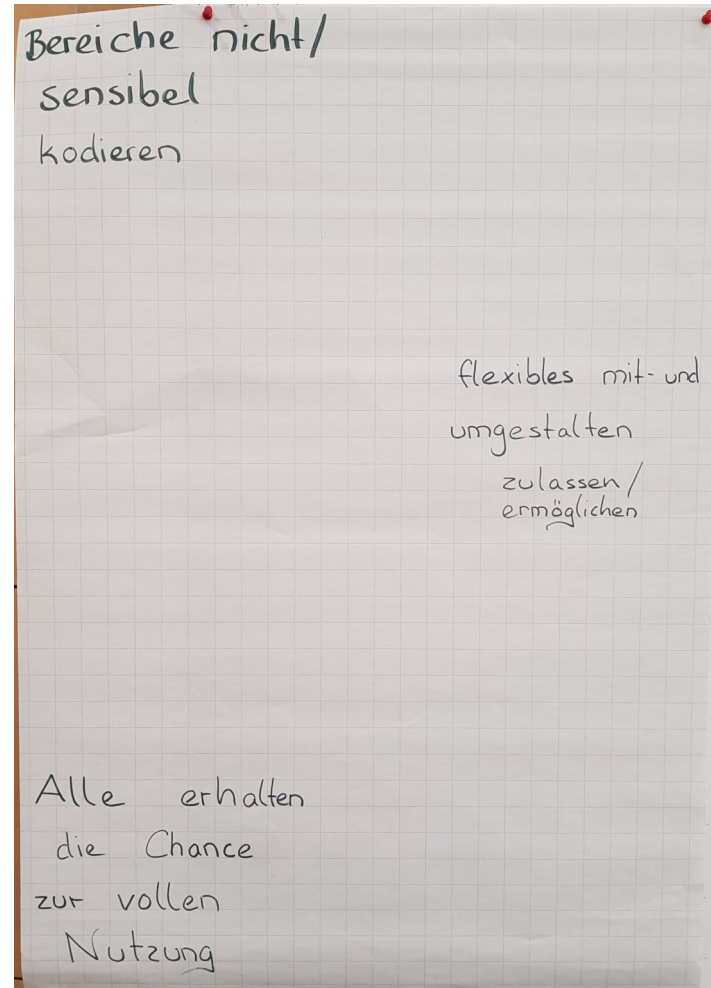 Bereiche nicht/
sensibel
kodieren
flexibles mit- und
umgestalten
zulassen/
ermöglichen
Alle erhalten
die Chance
zur vollen
Nutzung